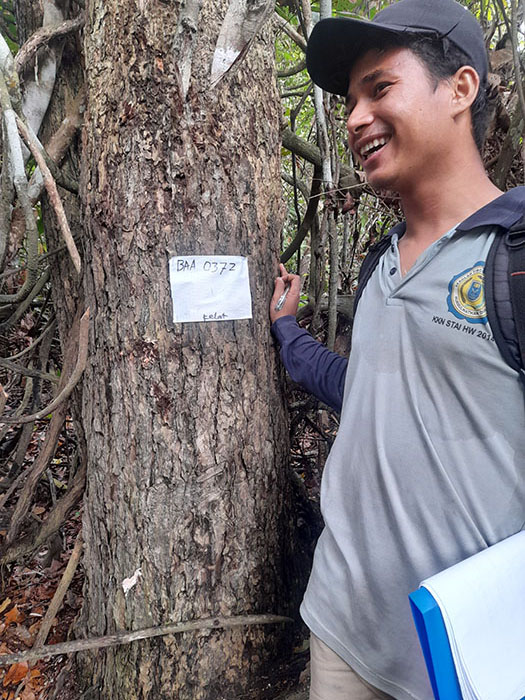 BAA 0372
kelat
KKN STAI HW 201